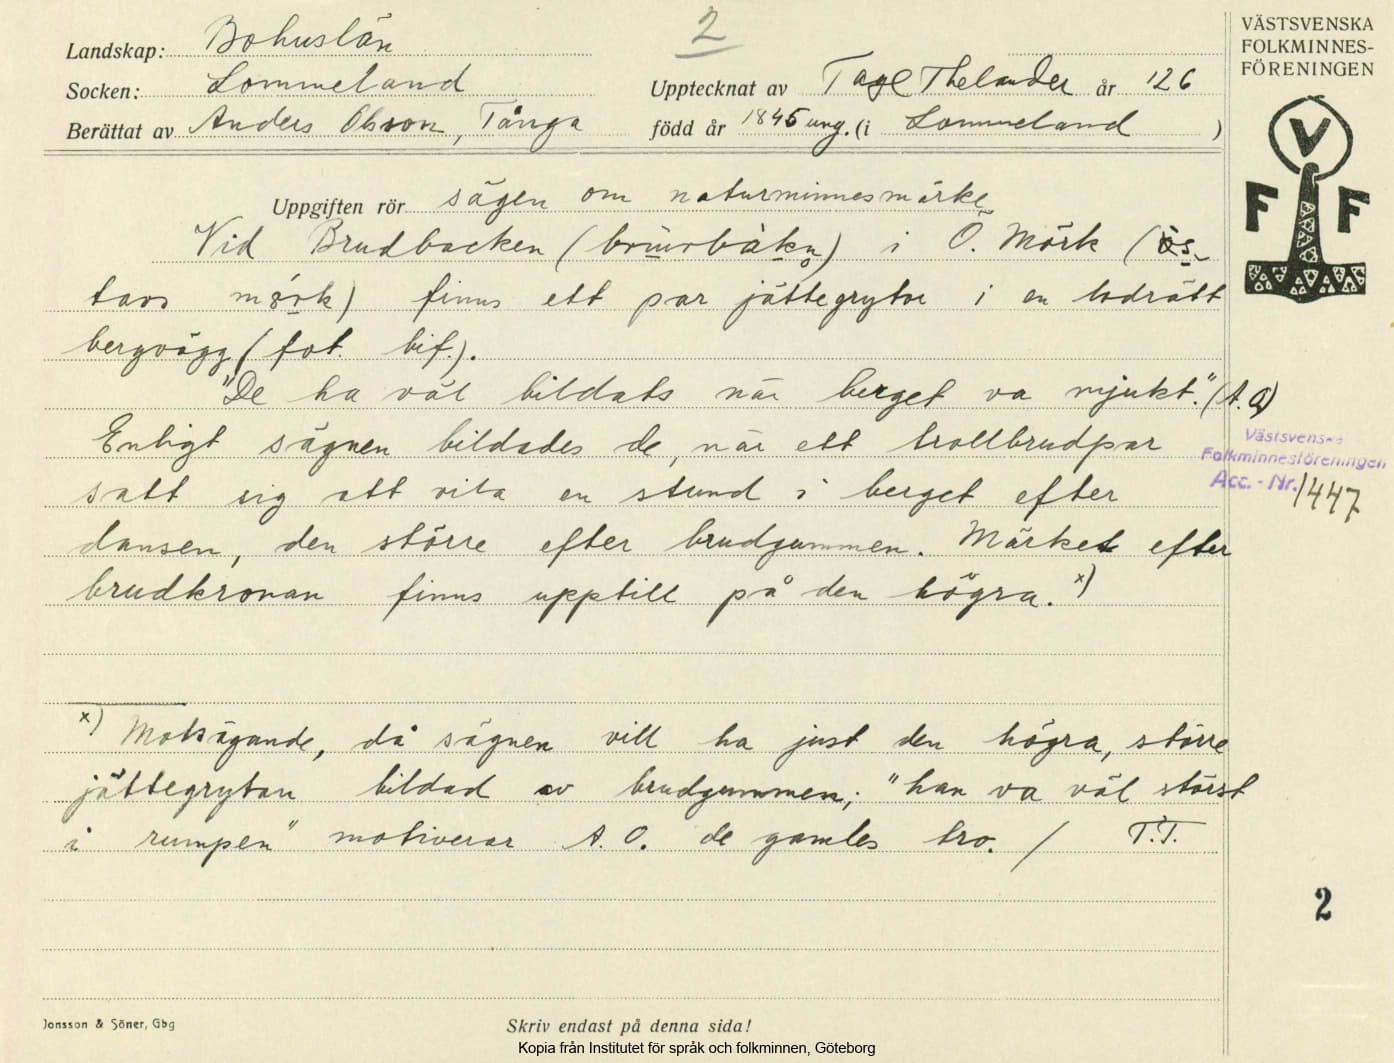 2
Landskap: Bohuslän
Socken: Lommeland
Upptecknat av Tage Thelander år 126
Berättat av Anders Olsson, Tånga
född år 1845 ung. (i Lommeland)
VÄSTSVENSKA
FOLKMINNES-
FÖRENINGEN
V
F F
Uppgiften rör sägen om naturminnesmärke
Vid Brudbacken ( ) i Ö. Mörk (
) finns ett par jättegrytor i en lodrätt
bergvägg (fot. bif.).
"De ha väl bildats när berget va mjukt." (A.O)
Enligt sägnen bildades de, när ett trollbrudpar
satt sig att vila en stund i berget efter
dansen, den större efter brudgummen. Märket efter
brudkronan finns upptill på den högra. x)
Västsvenska
Folkminnesföreningen
Acc. - Nr. 1447
x) Motsägande, då sägnen vill ha just den högra, större
jättegrytan bildad av brudgummen; "han va väl störst
i rumpen" motiverar A. O. de gamles tro. / T.T.
2
Jonsson & Söner, Gbg
Skriv endast på denna sida!
Kopia från Institutet för språk och folkminnen, Göteborg